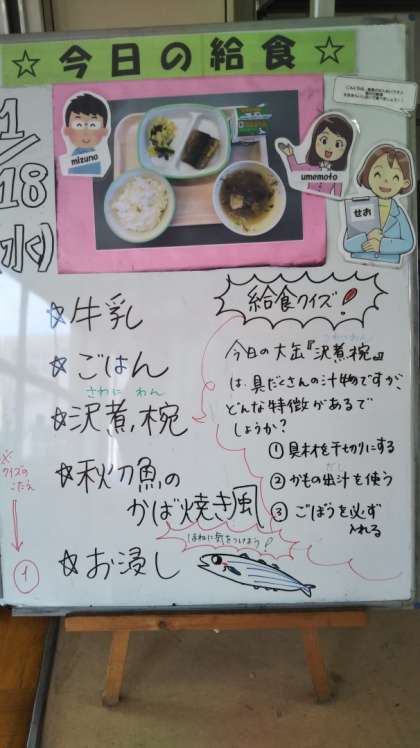 ☆ 今日の給食 ☆
1/18(水)
mizuno
umemoto
せお
☆牛乳
☆ごはん
さわに わん
☆沢煮椀
☆秋刀魚の
かば焼き風
ほねに気をつけよう!
☆お浸し
給食クイズ!
今日の大缶『沢煮椀』
は、具だくさんの汁物ですが、
どんな特徴があるで
しょうか?
①具材を千切りにする
だし
②かもの出汁を使う
③ごぼうを必ず
入れる
※
クイズの
こたえ
①